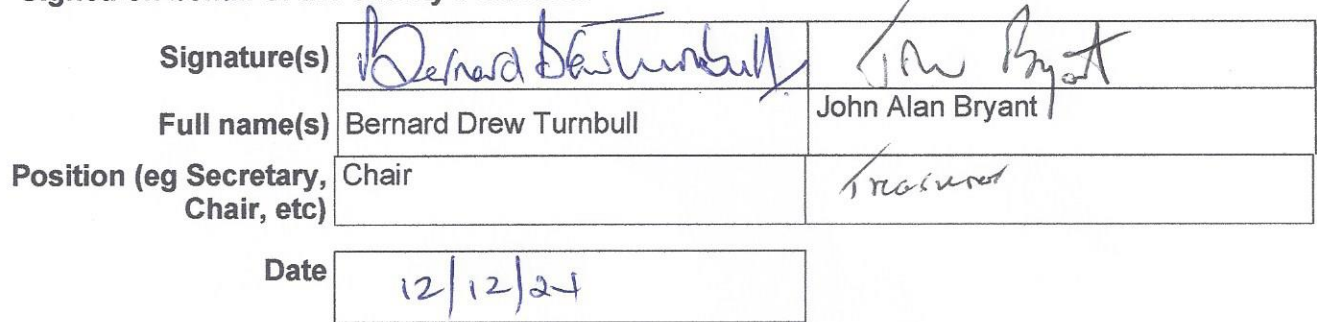 Signature(s) Bernard Drew Turnbull John Bryant
Full name(s) Bernard Drew Turnbull John Alan Bryant
Position (eg Secretary, Chair Treasurer
Chair, etc)
Date 12/12/24